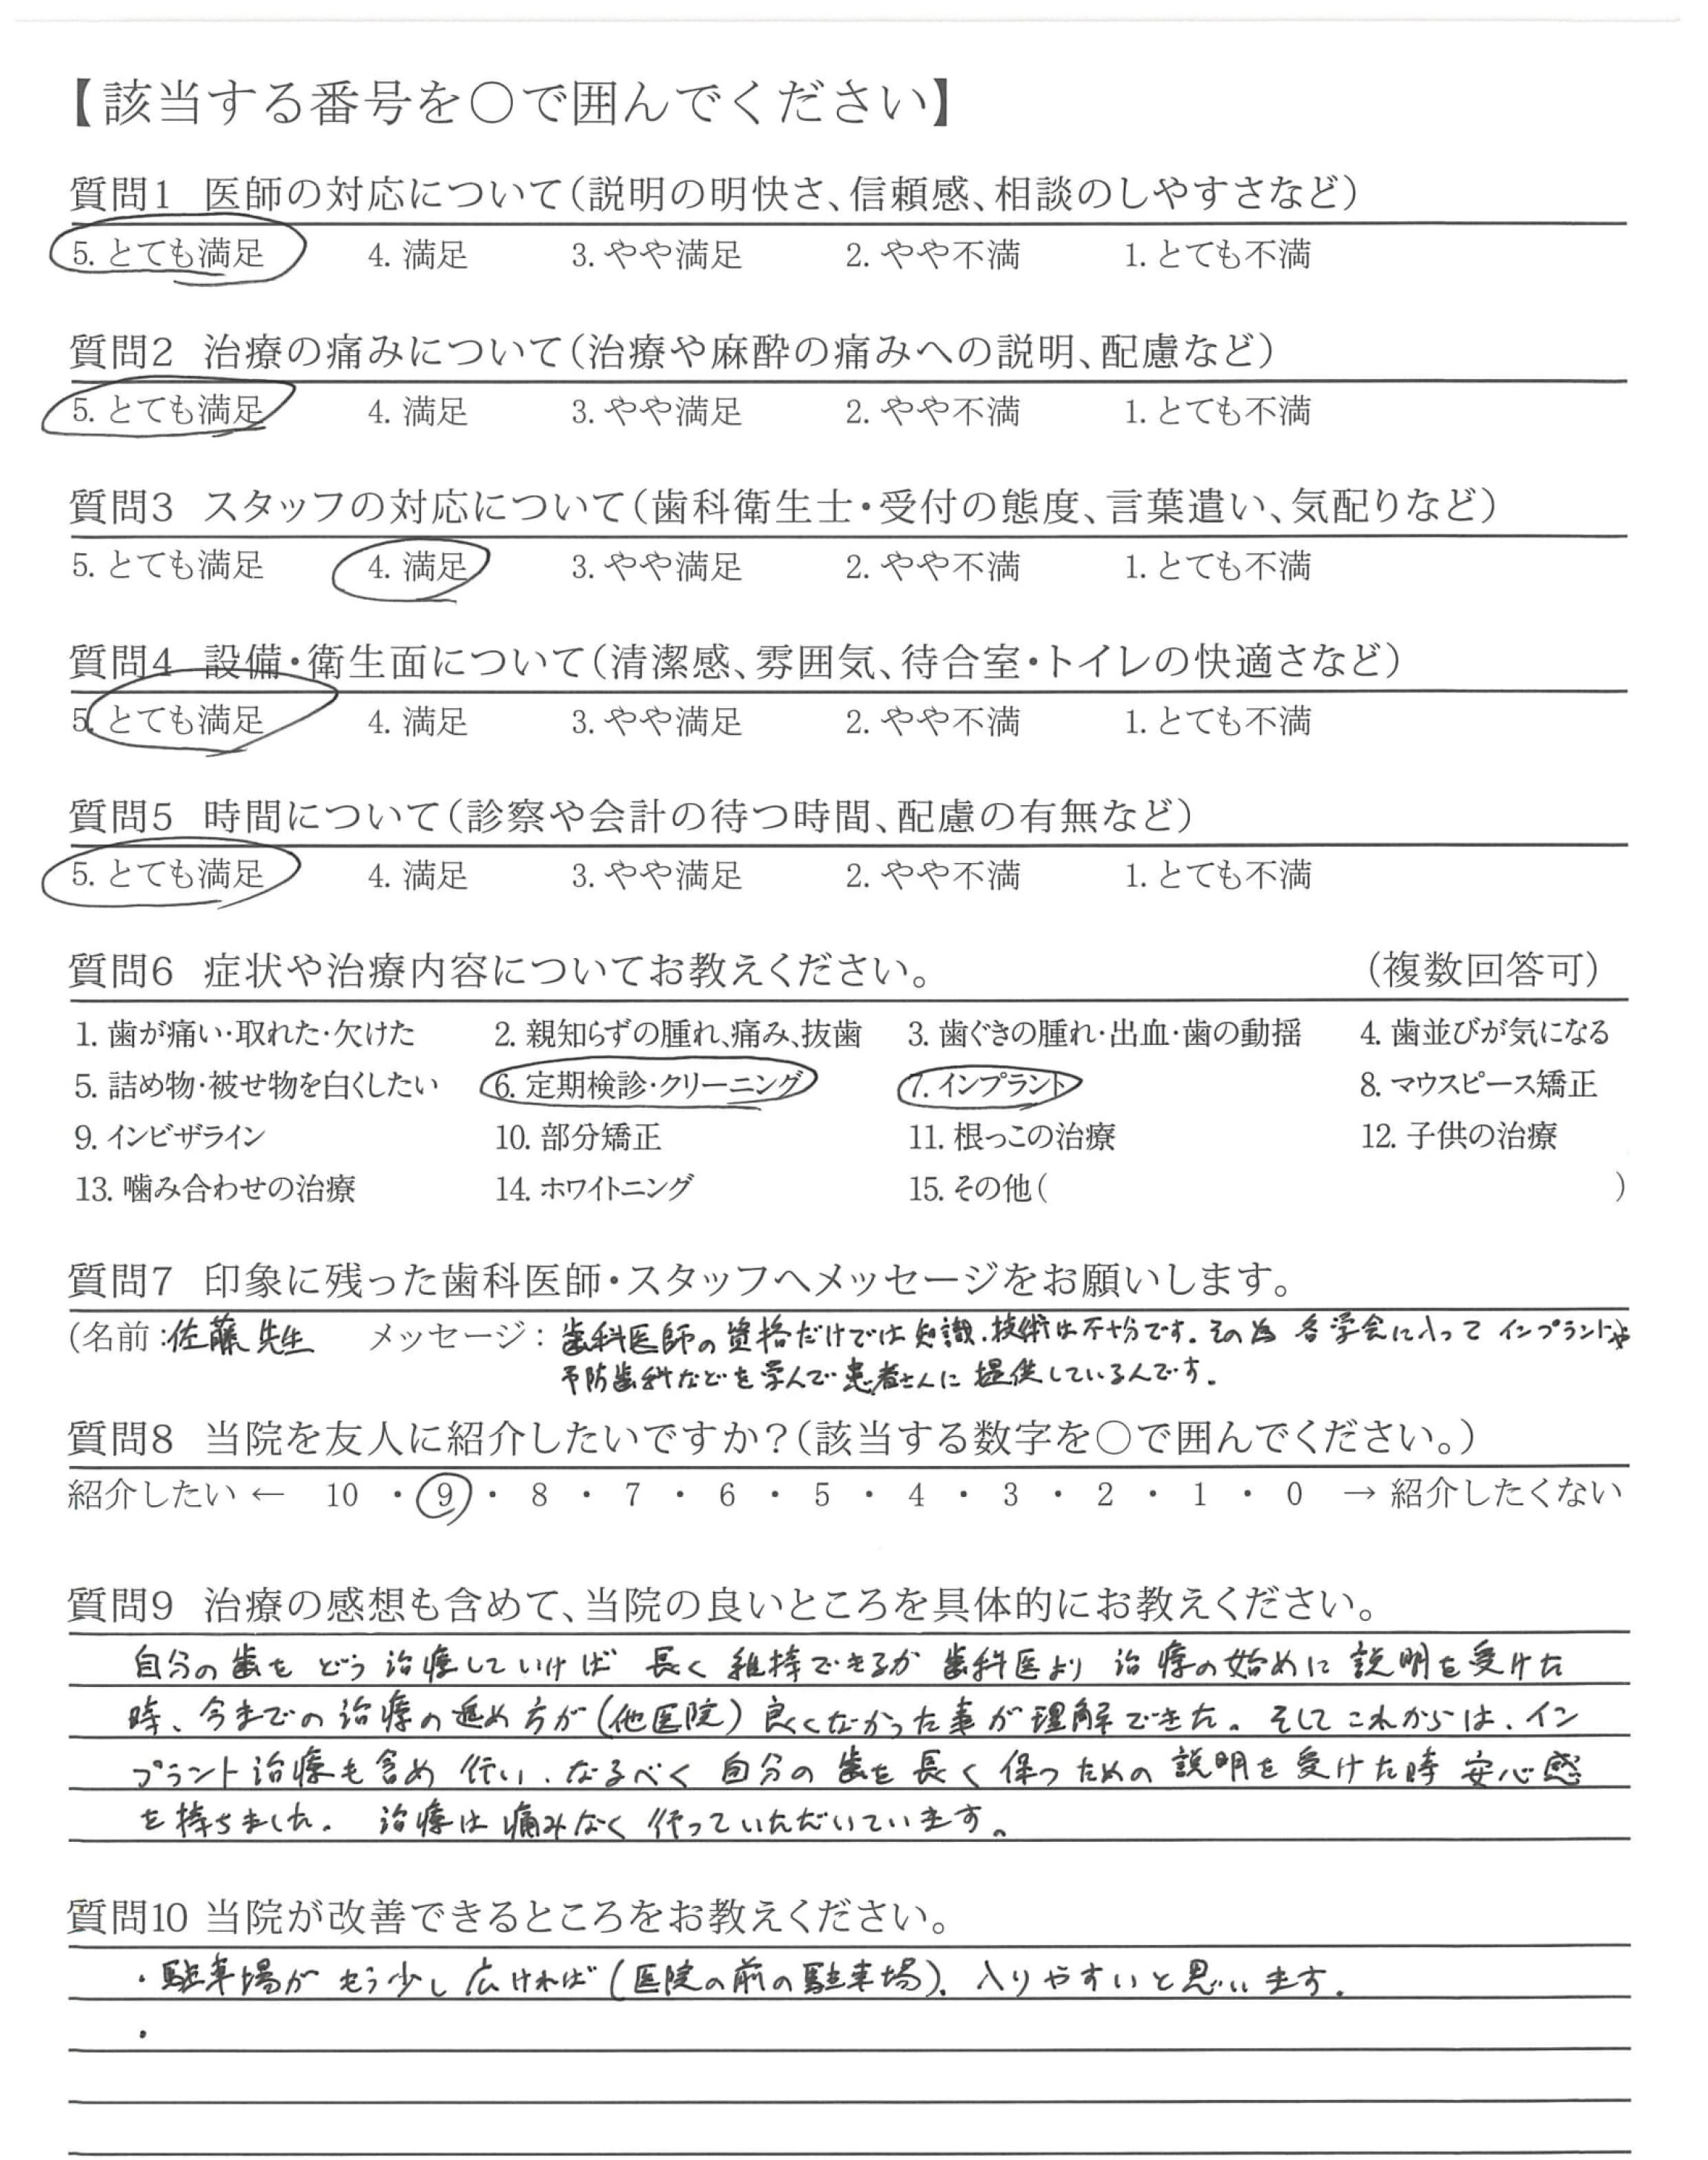 【該当する番号を○で囲んでください】
質問1 医師の対応について(説明の明快さ、信頼感、相談のしやすさなど)
5. とても満足 4. 満足 3. やや満足 2. やや不満 1. とても不満
質問2 治療の痛みについて(治療や麻酔の痛みへの説明、配慮など)
5. とても満足 4. 満足 3. やや満足 2. やや不満 1. とても不満
質問3 スタッフの対応について(歯科衛生士・受付の態度、言葉遣い、気配りなど)
5. とても満足 4. 満足 3. やや満足 2. やや不満 1. とても不満
質問4 設備・衛生面について(清潔感、雰囲気、待合室・トイレの快適さなど)
5. とても満足 4. 満足 3. やや満足 2. やや不満 1. とても不満
質問5 時間について(診察や会計の待つ時間、配慮の有無など)
5. とても満足 4. 満足 3. やや満足 2. やや不満 1. とても不満
質問6 症状や治療内容についてお教えください。 (複数回答可)
1. 歯が痛い・取れた・欠けた 2. 親知らずの腫れ、痛み、抜歯 3. 歯ぐきの腫れ・出血・歯の動揺 4. 歯並びが気になる
5. 詰め物・被せ物を白くしたい 6. 定期検診・クリーニング 7. インプラント 8. マウスピース矯正
9. インビザライン 10. 部分矯正 11. 根っこの治療 12. 子供の治療
13. 噛み合わせの治療 14. ホワイトニング 15. その他( )
質問7 印象に残った歯科医師・スタッフへメッセージをお願いします。
(名前:佐藤先生 メッセージ:歯科医師の資格だけでは知識、技術は不十分です。その為 各学会に入って インプラントや
予防歯科などを学んで患者さんに提供しているんです。
質問8 当院を友人に紹介したいですか?(該当する数字を○で囲んでください。)
紹介したい ← 10 ・ 9 ・ 8 ・ 7 ・ 6 ・ 5 ・ 4 ・ 3 ・ 2 ・ 1 ・ 0 → 紹介したくない
質問9 治療の感想も含めて、当院の良いところを具体的にお教えください。
自分の歯をどう治療していけば 長く維持できるか 歯科医より 治療の始めに説明を受けた
時、今までの治療の進め方が(他医院)良くなかった事が理解できた。そしてこれからは、イン
プラント治療も含め 行い、なるべく 自分の歯を長く保つための説明を受けた時 安心感
を持ちました。 治療は痛みなく行っていただいています。
質問10 当院が改善できるところをお教えください。
・駐車場がもう少し広ければ(医院の前の駐車場)、入りやすいと思います。
・